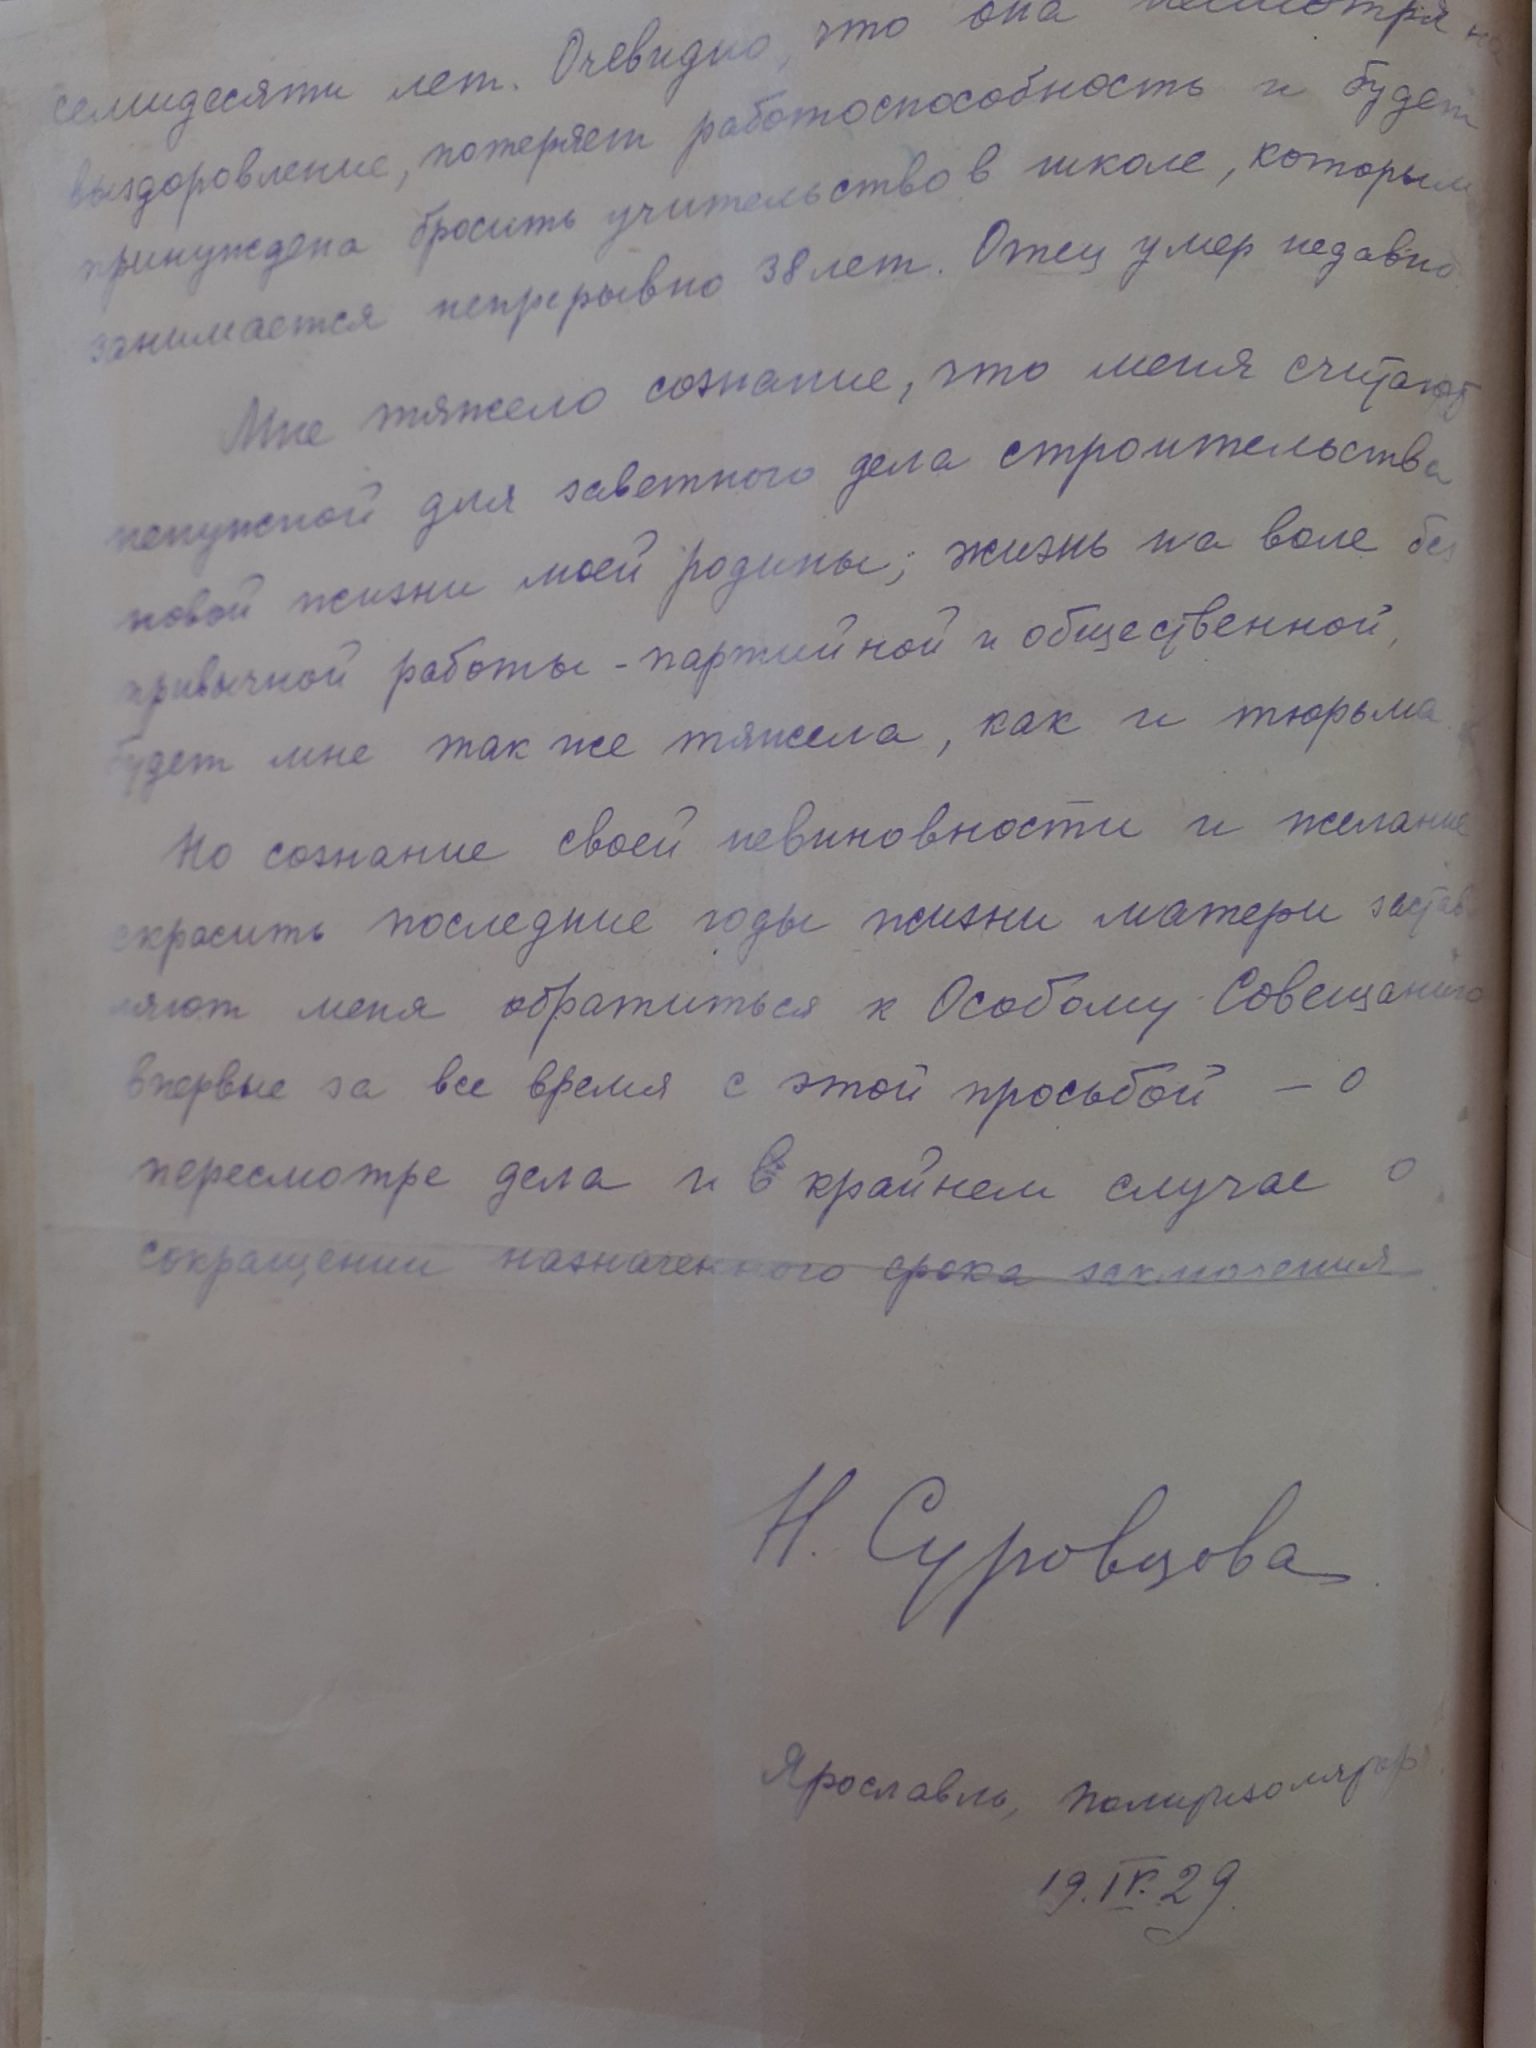 семидесяти лет. Очевидно, что она несмотря на
выздоровление, потеряет работоспособность и будет
принуждена бросить учительство в школе, которым
занимается непрерывно 38 лет. Отец умер недавно.
Мне тяжело сознание, что меня считают
ненужной для заветного дела строительства
новой жизни моей родины; жизнь на воле без
привычной работы - партийной и общественной,
будет мне так же тяжела, как и тюрьма.
Но сознание своей невиновности и желание
скрасить последние годы жизни матери застав-
ляют меня обратиться к Особому Совещанию
впервые за все время с этой просьбой – о
пересмотре дела и в крайнем случае о
сокращении назначенного срока заключения
Н. Суровцова
Ярославль, Политизолятор.
19.IV.29.